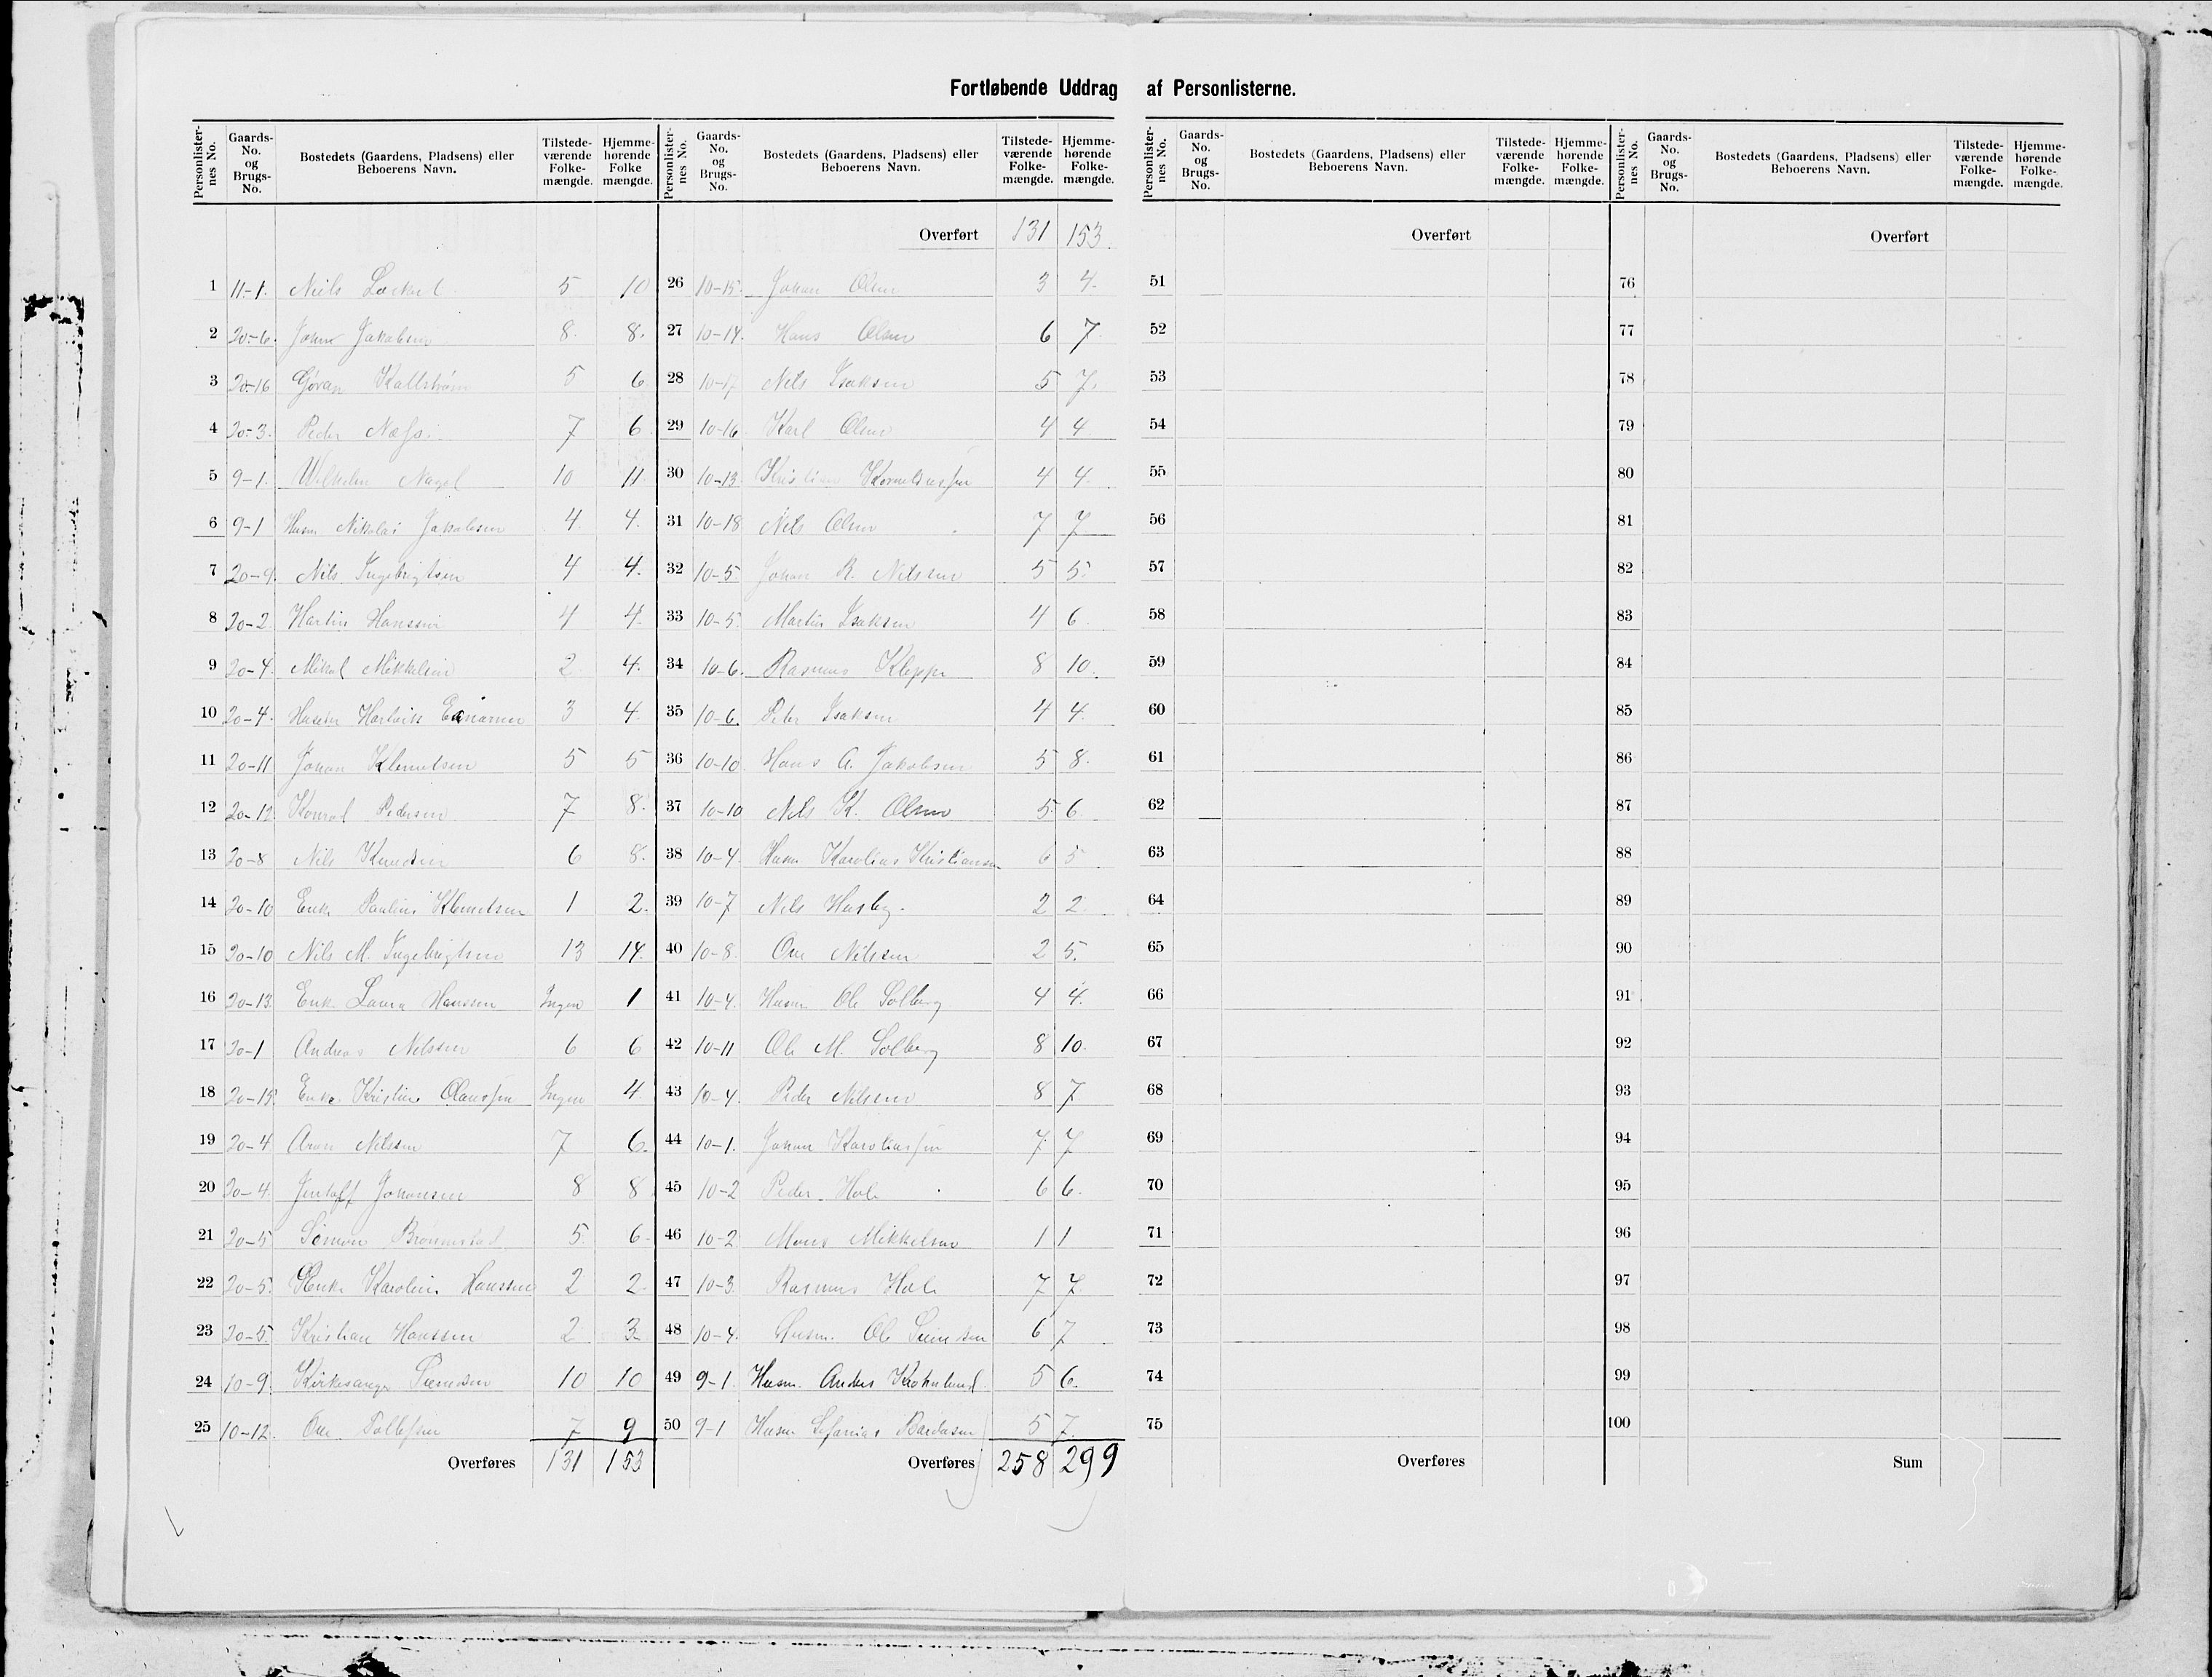 Fortløbende Uddrag af Personlisterne.
Personlister-nes No. Gaards-No. og Brugs-No. Bostedets (Gaardens, Pladsens) eller Beboerens Navn. Tilstede-værende Folke-mængde. Hjemme-hørende Folke mængde.
1 11-1. Niels 5 10
2 20-6. Johan Jakobsen 8. 8.
3 20-16 Gøran Kallstrøm 5 6
4 20-3. Peder Næss. 7 6
5 9-1. Wilhelm Nagel 10 11.
6 9-1 Husm Nikolai Jakobsen 4. 4.
7 20-9. Nils Ingebrigtsen 4 4.
8 20-2 Martin Hanssen 4 4.
9 20-4. Mikal Mikkelsen 2 4.
10 20-4. Hartvik 3 4.
11 20-11 Johan Klemetsen 5 5
12 20-12 Konrad Pedersen 7 8.
13 20-8 Nils Knudsen 6 8.
14 20-10 Enke Pauline Klemetsen 1 2.
15 20-10 Nils M. Ingebrigtsen 13 14.
16 20-13. Enke Laura Hanssen Ingen 1
17 20-1 Andreas Nilssen 6 6
18 20-15. Enke Kristine Olaussen Ingen 4
19 20-4 Aron Nilssen 7 6.
20 20-4. Jentoft Johansen 8 8
21 20-5 Simon 5. 6.
22 20-5. Enke Karoline Hanssen 2 2.
23 20-5. Kristian Hanssen 2 3.
24 10-9. Kirkesanger 10 10
25 10-12. Ove Tollefsen 7 9
Overføres 131 153
Personlister-nes No. Gaards-No. og Brugs-No. Bostedets (Gaardens, Pladsens) eller Beboerens Navn. Tilstede-værende Folke-mængde. Hjemme-hørende Folke-mængde.
Overført 131 153.
26 10-15. Johan Olsen 3 4.
27 10-14. Hans Olsen 6 7.
28 10-17 Nils Isaksen 5 7.
29 10-16. Karl Olsen 4 4
30 10-13. Kristian Korneliussen 4 4.
31 10-18 Nils Olsen 7 7
32 10-5. Johan R. Nilssen 5 5.
33 10-5 Martin Isaksen 4 6.
34 10-6. Rasmus Kleppe 8 10.
35 10-6. Peter Isaksen 4 4.
36 10-10 Hans A. Jakobsen 5 8.
37 10-10 Nils K. Olsen 5. 6.
38 10-4. Husm Karolius Kristiansen 6 5
39 10-7 Nils Husby. 2 2.
40 10-8. Ove Nilssen 2 5.
41 10-4. Husm Ole Solberg 4 4.
42 10-11 Ole M. Solberg 8 10.
43 10-4. Peder Nilssen 8 7
44 10-1. Johan Karoliussen 7. 7
45 10-2 Peder Hole 6 6.
46 10-2 Mons Mikkelsen 1 1
47 10-3. Rasmus Hole 7 7.
48 10-4. Husm. Ole 6 7
49 9-1. Husm. Anders 5 6.
50 9-1 Husm Sefanias Bardosen 5 7.
Overføres 258 299
Personlister-nes No. Gaards-No. og Brugs-No. Bostedets (Gaardens, Pladsens) eller Beboerens Navn. Tilstede-værende Folke-mængde. Hjemme-hørende Folke-mængde.
Overført
51
52
53
54
55
56
57
58
59
60
61
62
63
64
65
66
67
68
69
70
71
72
73
74
75
Overføres
Personlister-nes No. Gaards-No. og Brugs-No. Bostedets (Gaardens, Pladsens) eller Beboerens Navn. Tilstede-værende Folke-mængde. Hjemme-hørende Folke-mængde.
Overført
76
77
78
79
80
81
82
83
84
85
86
87
88
89
90
91
92
93
94
95
96
97
98
99
100
Sum